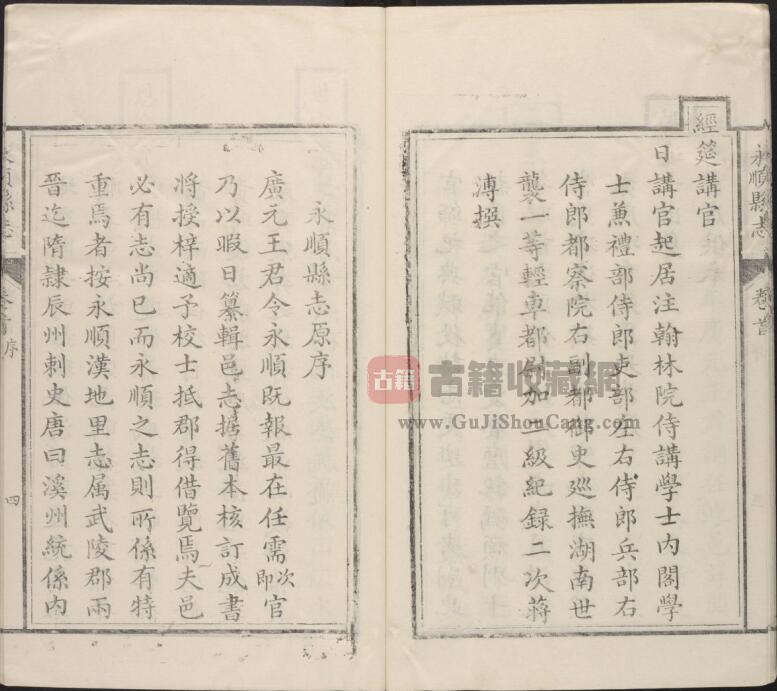 永順縣志
卷首
經筵講官
日講官起居注翰林院侍講學士內閣學
士兼禮部侍郎吏部左右侍郎兵部右
侍郎都察院右副都御史巡撫湖南世
襲一等輕車都尉加二級紀錄二次蔣
溥撰
永順縣志原序
廣元王君令永順既報最在任需次即官
乃以暇日纂輯邑志据舊本核訂成書
將授梓適予校士抵郡得借覽焉夫邑
必有志尚已而永順之志則所係有特
重焉者按永順漢地里志属武陵郡兩
晉迄隋隷辰州刺史唐曰溪州統係內
永順縣志
卷首
序
四
古籍
古籍收藏網
www.GuJiShouCang.com